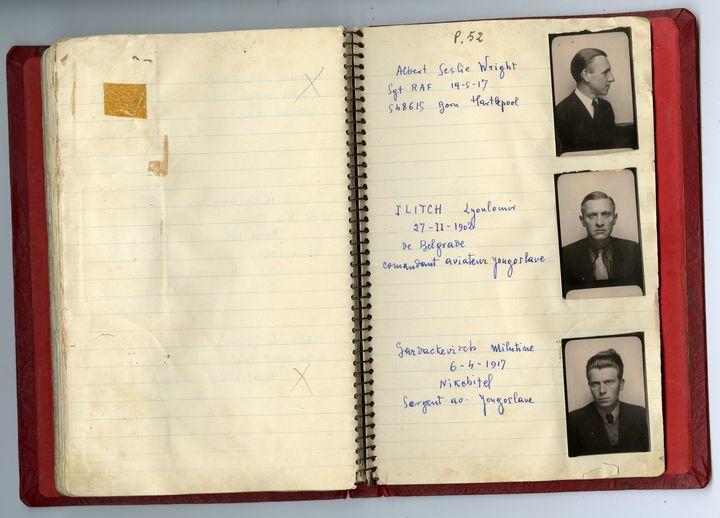 P. 52
Albert Leslie Wright
Sgt RAF 19-5-17
548615 Born Hartlepool
ILITCH Lyoulomir
27-II-1902
de Belgrade
comandant aviateur yougoslave
Gardackevisch Milutine
6-4-1917
Nikchitel
Sergent av. yougoslave